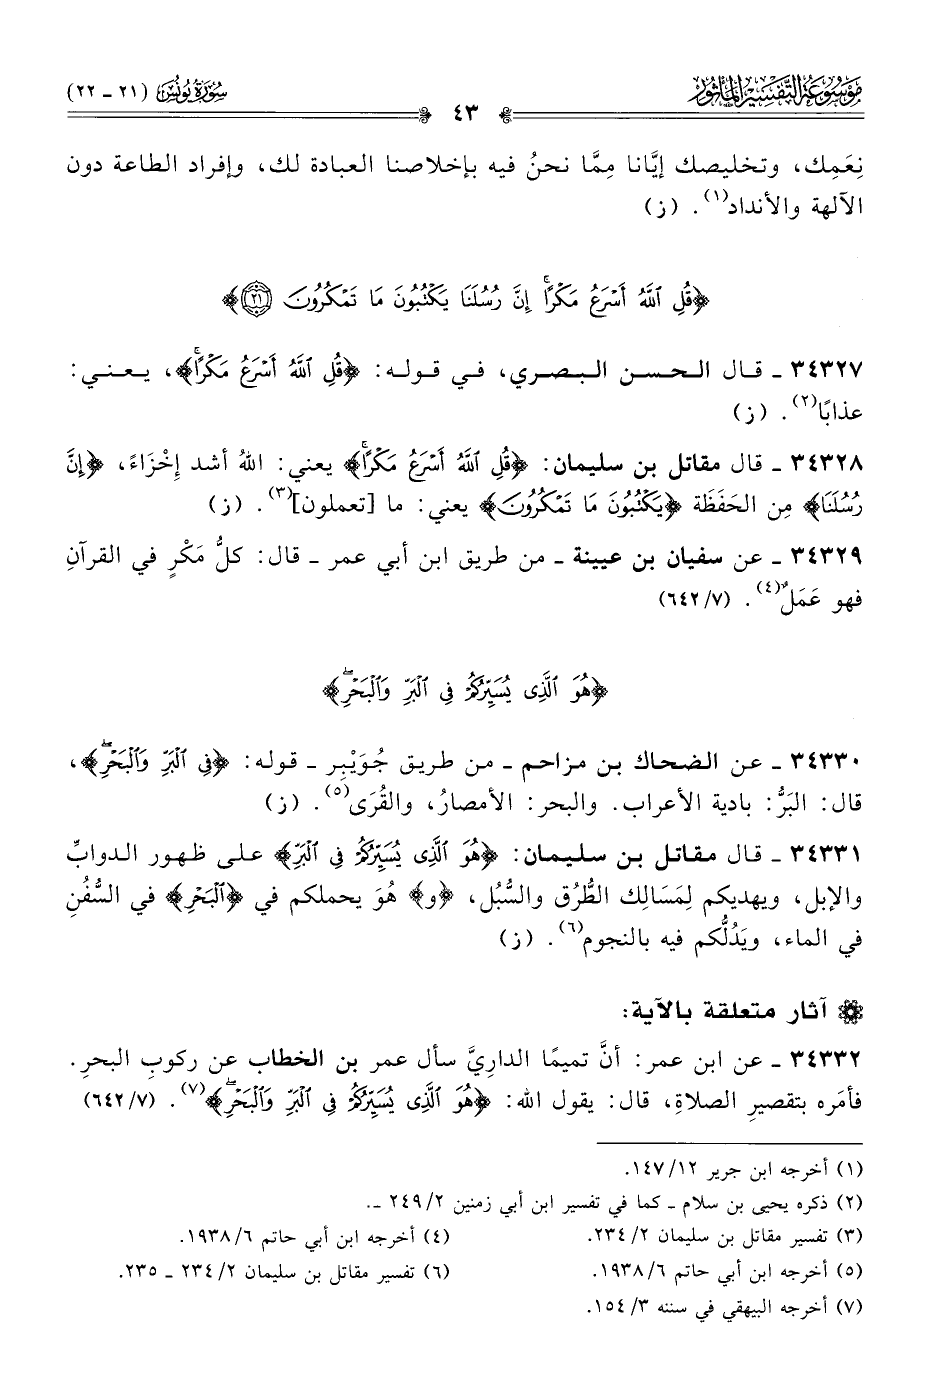 موسوعة التفسير المأثور
٤٣
سورة يونس (٢١ ـ ٢٢)
نِعَمِك، وتخليصك إيَّانا مِمَّا نحنُ فيه بإخلاصنا العبادة لك، وإفراد الطاعة دون
الآلهة والأنداد(١). (ز)
﴿قُلِ ٱللَّهُ أَسۡرَعُ مَكۡرًاۚ إِنَّ رُسُلَنَا يَكۡتُبُونَ مَا تَمۡكُرُونَ ٢١﴾
٣٤٣٢٧ ـ قال الحسن البصري، في قوله: ﴿قُلِ ٱللَّهُ أَسۡرَعُ مَكۡرًاۚ﴾، يعني:
عذابًا(٢). (ز)
٣٤٣٢٨ ـ قال مقاتل بن سليمان: ﴿قُلِ ٱللَّهُ أَسۡرَعُ مَكۡرًاۚ﴾ يعني: اللهُ أشد إِخْزَاءً، ﴿إِنَّ
رُسُلَنَا﴾ مِن الحَفَظَة ﴿يَكۡتُبُونَ مَا تَمۡكُرُونَ﴾ يعني: ما [تعملون](٣). (ز)
٣٤٣٢٩ ـ عن سفيان بن عيينة ـ من طريق ابن أبي عمر ـ قال: كلُّ مَكْرٍ في القرآنِ
فهو عَمَلٌ(٤). (٧/ ٦٤٢)
﴿هُوَ ٱلَّذِي يُسَيِّرُكُمۡ فِي ٱلۡبَرِّ وَٱلۡبَحۡرِۖ﴾
٣٤٣٣٠ ـ عن الضحاك بن مزاحم ـ من طريق جُوَيْبِر ـ قوله: ﴿فِي ٱلۡبَرِّ وَٱلۡبَحۡرِۖ﴾،
قال: البَرُّ: بادية الأعراب. والبحر: الأمصارُ، والقُرَى(٥). (ز)
٣٤٣٣١ ـ قال مقاتل بن سليمان: ﴿هُوَ ٱلَّذِي يُسَيِّرُكُمۡ فِي ٱلۡبَرِّ﴾ على ظهور الدوابِّ
والإبل، ويهديكم لِمَسَالِك الطُّرُق والسُّبُل، ﴿و﴾ هُوَ يحملكم في ﴿ٱلۡبَحۡرِ﴾ في السُّفُنِ
في الماء، ويَدُلُّكم فيه بالنجوم(٦). (ز)
آثار متعلقة بالآية:
٣٤٣٣٢ ـ عن ابن عمر: أنَّ تميمًا الداريَّ سأل عمر بن الخطاب عن ركوبِ البحرِ.
فأمَره بتقصيرِ الصلاةِ، قال: يقول الله: ﴿هُوَ ٱلَّذِي يُسَيِّرُكُمۡ فِي ٱلۡبَرِّ وَٱلۡبَحۡرِۖ﴾(٧). (٧/ ٦٤٢)
(١) أخرجه ابن جرير ١٢/ ١٤٧.
(٢) ذكره يحيى بن سلام ـ كما في تفسير ابن أبي زمنين ٢/ ٢٤٩ ـ.
(٣) تفسير مقاتل بن سليمان ٢/ ٢٣٤.
(٤) أخرجه ابن أبي حاتم ٦/ ١٩٣٨.
(٥) أخرجه ابن أبي حاتم ٦/ ١٩٣٨.
(٦) تفسير مقاتل بن سليمان ٢/ ٢٣٤ ـ ٢٣٥.
(٧) أخرجه البيهقي في سننه ٣/ ١٥٤.